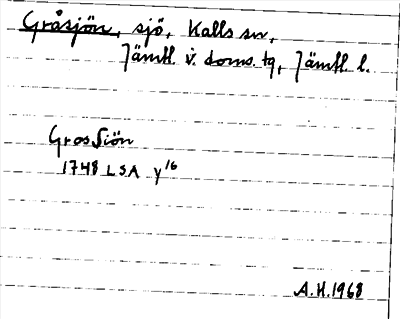 Gråsjön, sjö, Kalls sn,
Jämtl. v. doms. tg, Jämtl. l.
GrosSiön
1748 LSA y16
A.H.1968